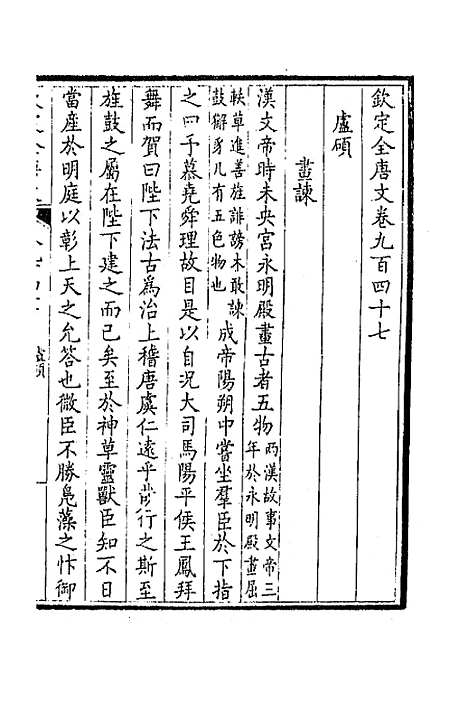 欽定全唐文卷九百四十七
盧碩
畫諫
漢文帝時未央宮永明殿畫古者五物兩漢故事文帝三年於永明殿畫屈
軼草進善旌誹謗木敢諫鼓獬豸凡有五色物也成帝陽朔中嘗坐羣臣於下指
之曰予慕堯舜理故目是以自況大司馬陽平侯王鳳拜
舞而賀曰陛下法古為治上稽唐虞仁遠乎哉行之斯至
旌鼓之屬在陛下建之而已矣至於神草靈獸臣知不日
當産於明庭以彰上天之允答也微臣不勝鳧藻之忭御
盧碩